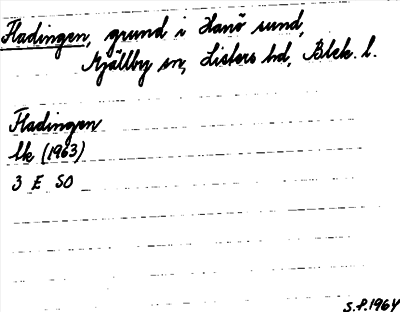 Fladingen, grund i Hanö sund,
Mjällby sn, Listers hd, Blek. l.
Fladingen
Uk (1963)
3 E SO
S.P. 1964